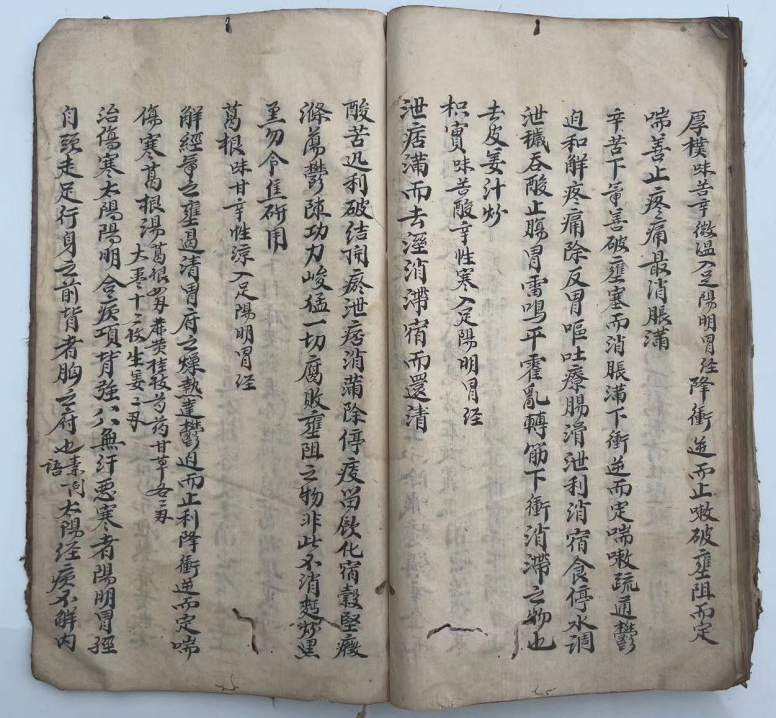 厚樸味苦辛微溫入足陽明胃经降衝逆而止嗽破壅阻而定
喘善止疼痛最消脹滿
辛苦下氣善破壅塞而消脹滿下衝逆而定喘嗽疏通鬱
迫和解疼痛除反胃嘔吐療腸滑泄利消宿食停水調
泄穢吞酸止腸胃雷鳴平霍亂轉筋下衝消滯之物也
去皮姜汁炒
枳實味苦酸辛性寒入足陽明胃经
泄痞滿而去溼消滯宿而還清
酸苦迅利破结開瘀泄痞消滿除停痰留飲化宿穀堅癥
滌蕩鬱陳功力峻猛一切腐敗壅阻之物非此不消麩炒黑
勿令焦研用
葛根味甘辛性涼入足陽明胃经
解經氣之壅遏清胃府之燥熱達鬱迫而止利降衝逆而定喘
傷寒葛根湯葛根四另蔴黄桂枝芍药甘草各二另
大枣十二枚生姜三另
治傷寒太陽陽明合病項背強八無汗惡寒者陽明胃經
自頭走足行身之前背者胸之府也素问語太陽经病不解内